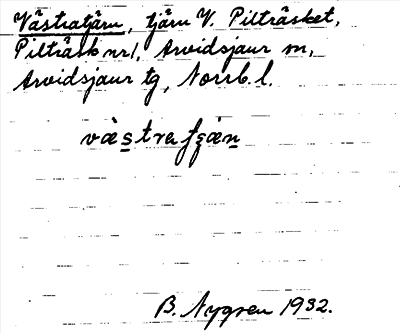 Västratjärn, tjärn V. Pilträsket,
Pilträsk nr 1, Arvidsjaur sn,
Arvidsjaur tg, Norrb. l.
B. Nygren 1932.